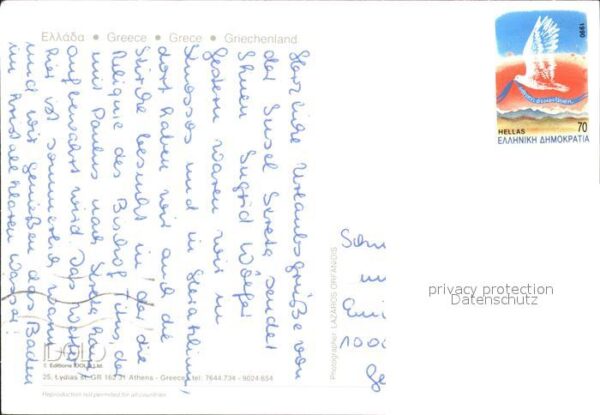 Ελλάδα • Greece • Grece • Griechenland
Herzliche Urlaubsgrüße von
der Insel Kreta sendet
Ihnen Ingrid
Gestern waren wir in
Knossos und in Heraklion,
dort haben wir auch die
Kirche besucht in der die
Reliquie des Bischof Titus, der
mit Paulus nach Kreta kam,
aufbewahrt wird. Das Wetter
hier ist sommerlich warm
und wir genießen das Baden
im kristallklaren Wasser
1990
HELLAS 70
ΕΛΛΗΝΙΚΗ ΔΗΜΟΚΡΑΤΙΑ
privacy protection
Datenschutz
Photographer: LAZAROS ORFANIDIS
IDOLO
© Editions IDOLO
25, Lydias st. GR 162 31 Athens - Greece, tel. 7644.734 - 9024-854
Reproduction not permited for all countries